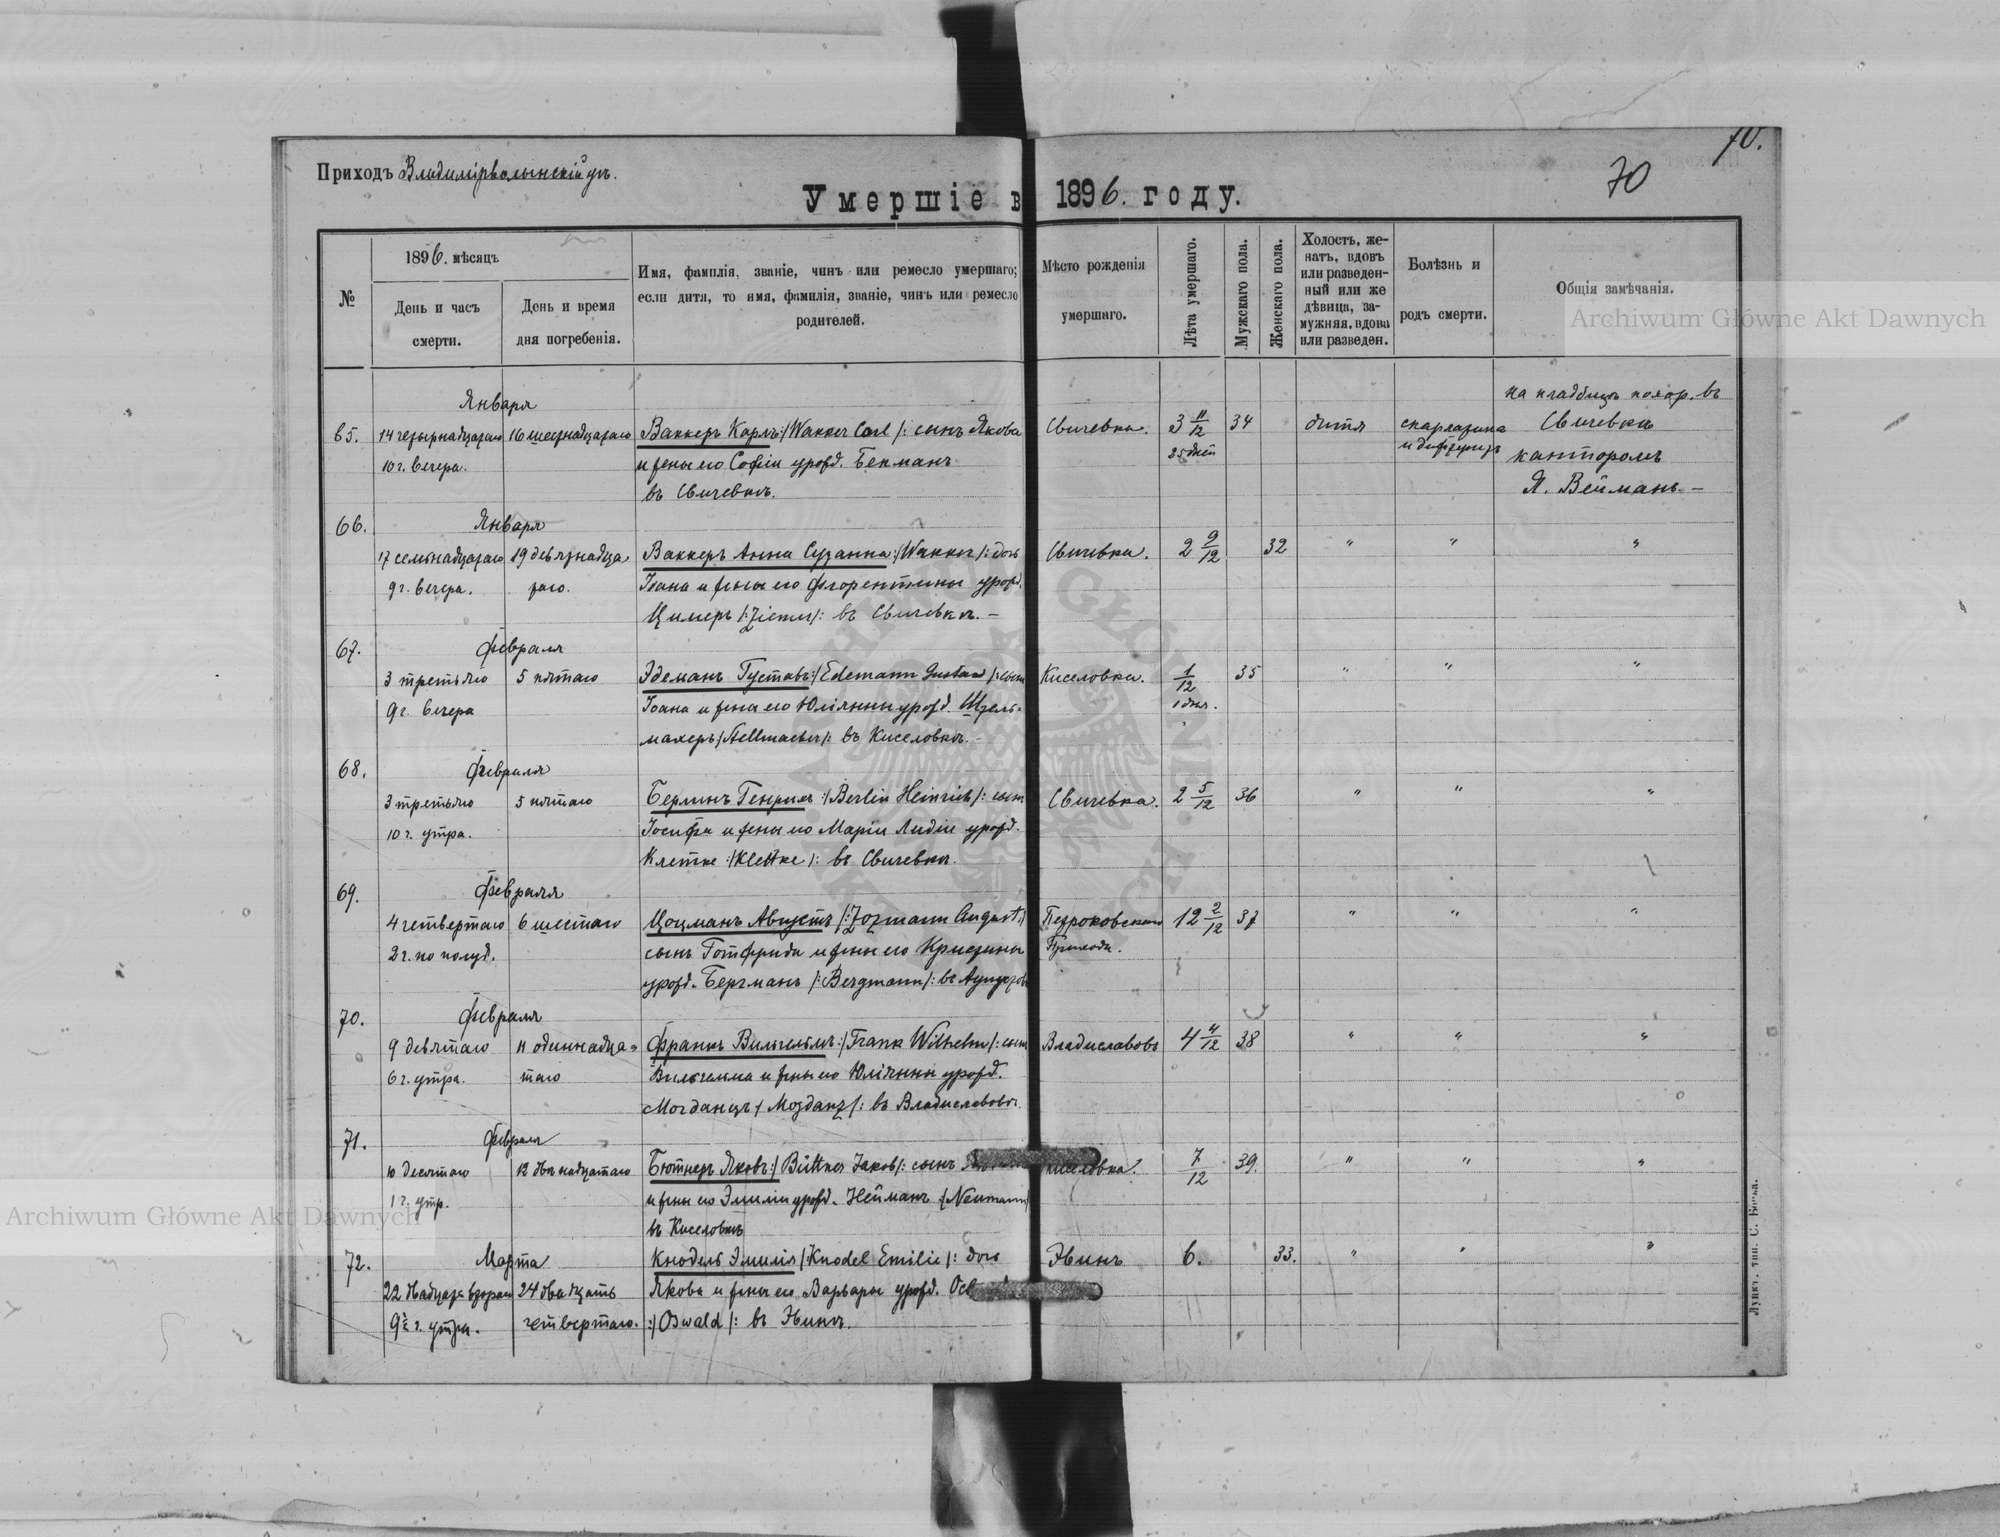 70.
70
Приходъ Владимірволынскій ул.
Умершіе в 1896. году.
№
1896. мѣсяцъ
День и часъ смерти.
День и время дня погребенія.
Имя, фамилія, званіе, чинъ или ремесло умершаго;
если дитя, то имя, фамилія, званіе, чинъ или ремесло
родителей.
Мѣсто рожденія
умершаго.
Лѣта умершаго.
Мужскаго пола.
Женскаго пола.
Холостъ, же-
натъ, вдовъ
или разведен-
ный или же
дѣвица, за-
мужняя. вдова
или разведен.
Болѣзнь и
родъ смерти.
Общія замѣчанія.
Archiwum Główne Akt Dawnych
Января
на кладбищѣ похор. въ
65. 14 четырнадцатаго 16 шестнадцатаго Ваккеръ Карлъ :/Wakker Carl/: сынъ Якова Свичевка. 3 11/12 34 дитя скарлатина Свичевкѣ
10 г. вечера. и жены его Софіи урожд. Бекманъ 25 дней и дифтеритъ канторомъ
въ Свичевкѣ. Я. Вейманъ. –
66. Января
17 семнадцатаго 19 девятнадца Ваккеръ Анна Сузанна :/Wakker/: дочь Свичевка. 2 9/12 32 " " "
9 г. вечера. таго. Іоана и жены его Флорентины урожд.
Цимеръ /:Ziemer/: въ Свичевкѣ. –
67. Февраля
3 третьяго 5 пятаго Эдеманъ Густавъ :/Edemann Gustav/: сынъ Киселовка. 1/12 35 " " "
9 г. вечера Іоана и жены его Юліянны урожд. Штель- 1 дня.
махеръ /Stellmacher/: въ Киселовкѣ.
68. Февраля
3 третьяго 5 пятаго Берлинъ Генрихъ :/Berlin Heinrich/: сынъ Свичевка. 2 5/12 36 " " "
10 г. утра. Іосифа и жены его Маріи Лидіи урожд.
Клетке :/Klettke/: въ Свичевкѣ.
69. Февраля
4 четвертаго 6 шестаго Цоцманъ Августъ /:Zozmann August/: Петроковскаго 12 2/12 37 " " "
2 г. по полуд. сынъ Готфрида и жены его Кристины Прихода.
урожд. Бергманъ /:Bergmann/: въ
70. Февраля
9 девятаго 11 одиннадца= Франкъ Вильгельмъ :/Frank Wilhelm/: сынъ Владиславовъ 4 4/12 38 " " "
6 г. утра. таго Вильгельма и жены его Юліянны урожд.
Могданцъ / Mogdanz/: въ Владиславовѣ.
71. Февраля
10 десятаго 12 двѣнадцатаго Бютнеръ Яковъ :/Büttner Jakob/: сынъ 7/12 39. " " "
1 г. утр. и жены его Эмиліи урожд. Нейманъ :/Neumann/
въ Киселовкѣ
72. Марта Кнодель Эмилія /Knodel Emilie/: дочь Эвинъ 6. 33. " " "
22 двадцать втораго 24 двадцать Якова и жены его Варвары урожд.
9½ г. утра. четвертаго. :/Oswald/: въ Эвинѣ.
Archiwum Główne Akt Dawnych